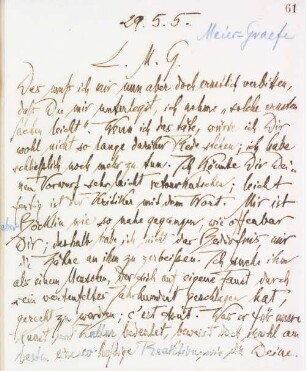 61
29.5.5.
Meier-Graefe
L. M. G.
Das muß ich mir nun aber doch ernstlich verbitten,
daß Du mir unterlegst, ich nähme "solche ernsten
Sachen leicht". Wenn ich das täte, würde ich Dir
wohl nicht so lange darüber Rede stehen; ich habe
schließlich noch mehr zu tun. Ich könnte Dir Dei-
nen Vorwurf sehr leicht retour
fertig ist der Kritiker mit dem Wort. Mir ist
aber Böcklin nie so nahe gegangen, wie offenbar
Dir; deshalb habe ich nicht das Bedürfnis, mir
die Zähne an ihm zu zerbeißen. Ich suche ihm
als einem Menschen, der sich auf eigene Faust durch
ein Jahrhundert geschlagen hat,
gerecht zu werden; c'est tout. Was er für unsre
Kunst und Kultur bedeutet, beweist doch wohl am
besten eine so heftige Reaktion, wie die Deine.